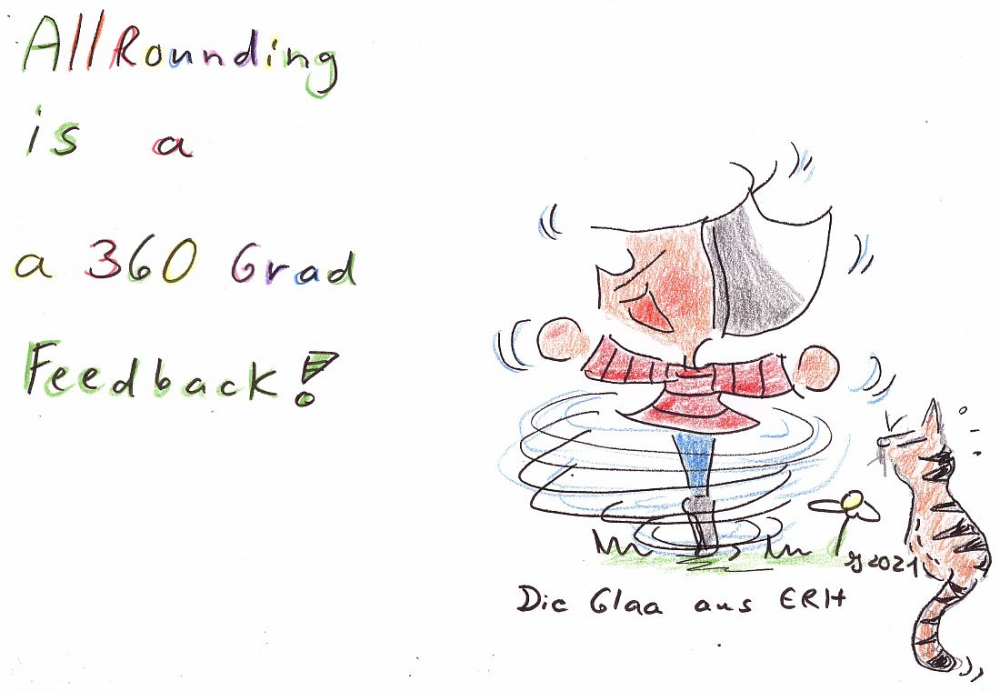 AllRounding
is a
a 360 Grad
Feedback!
2021
Die Glaa aus ERH